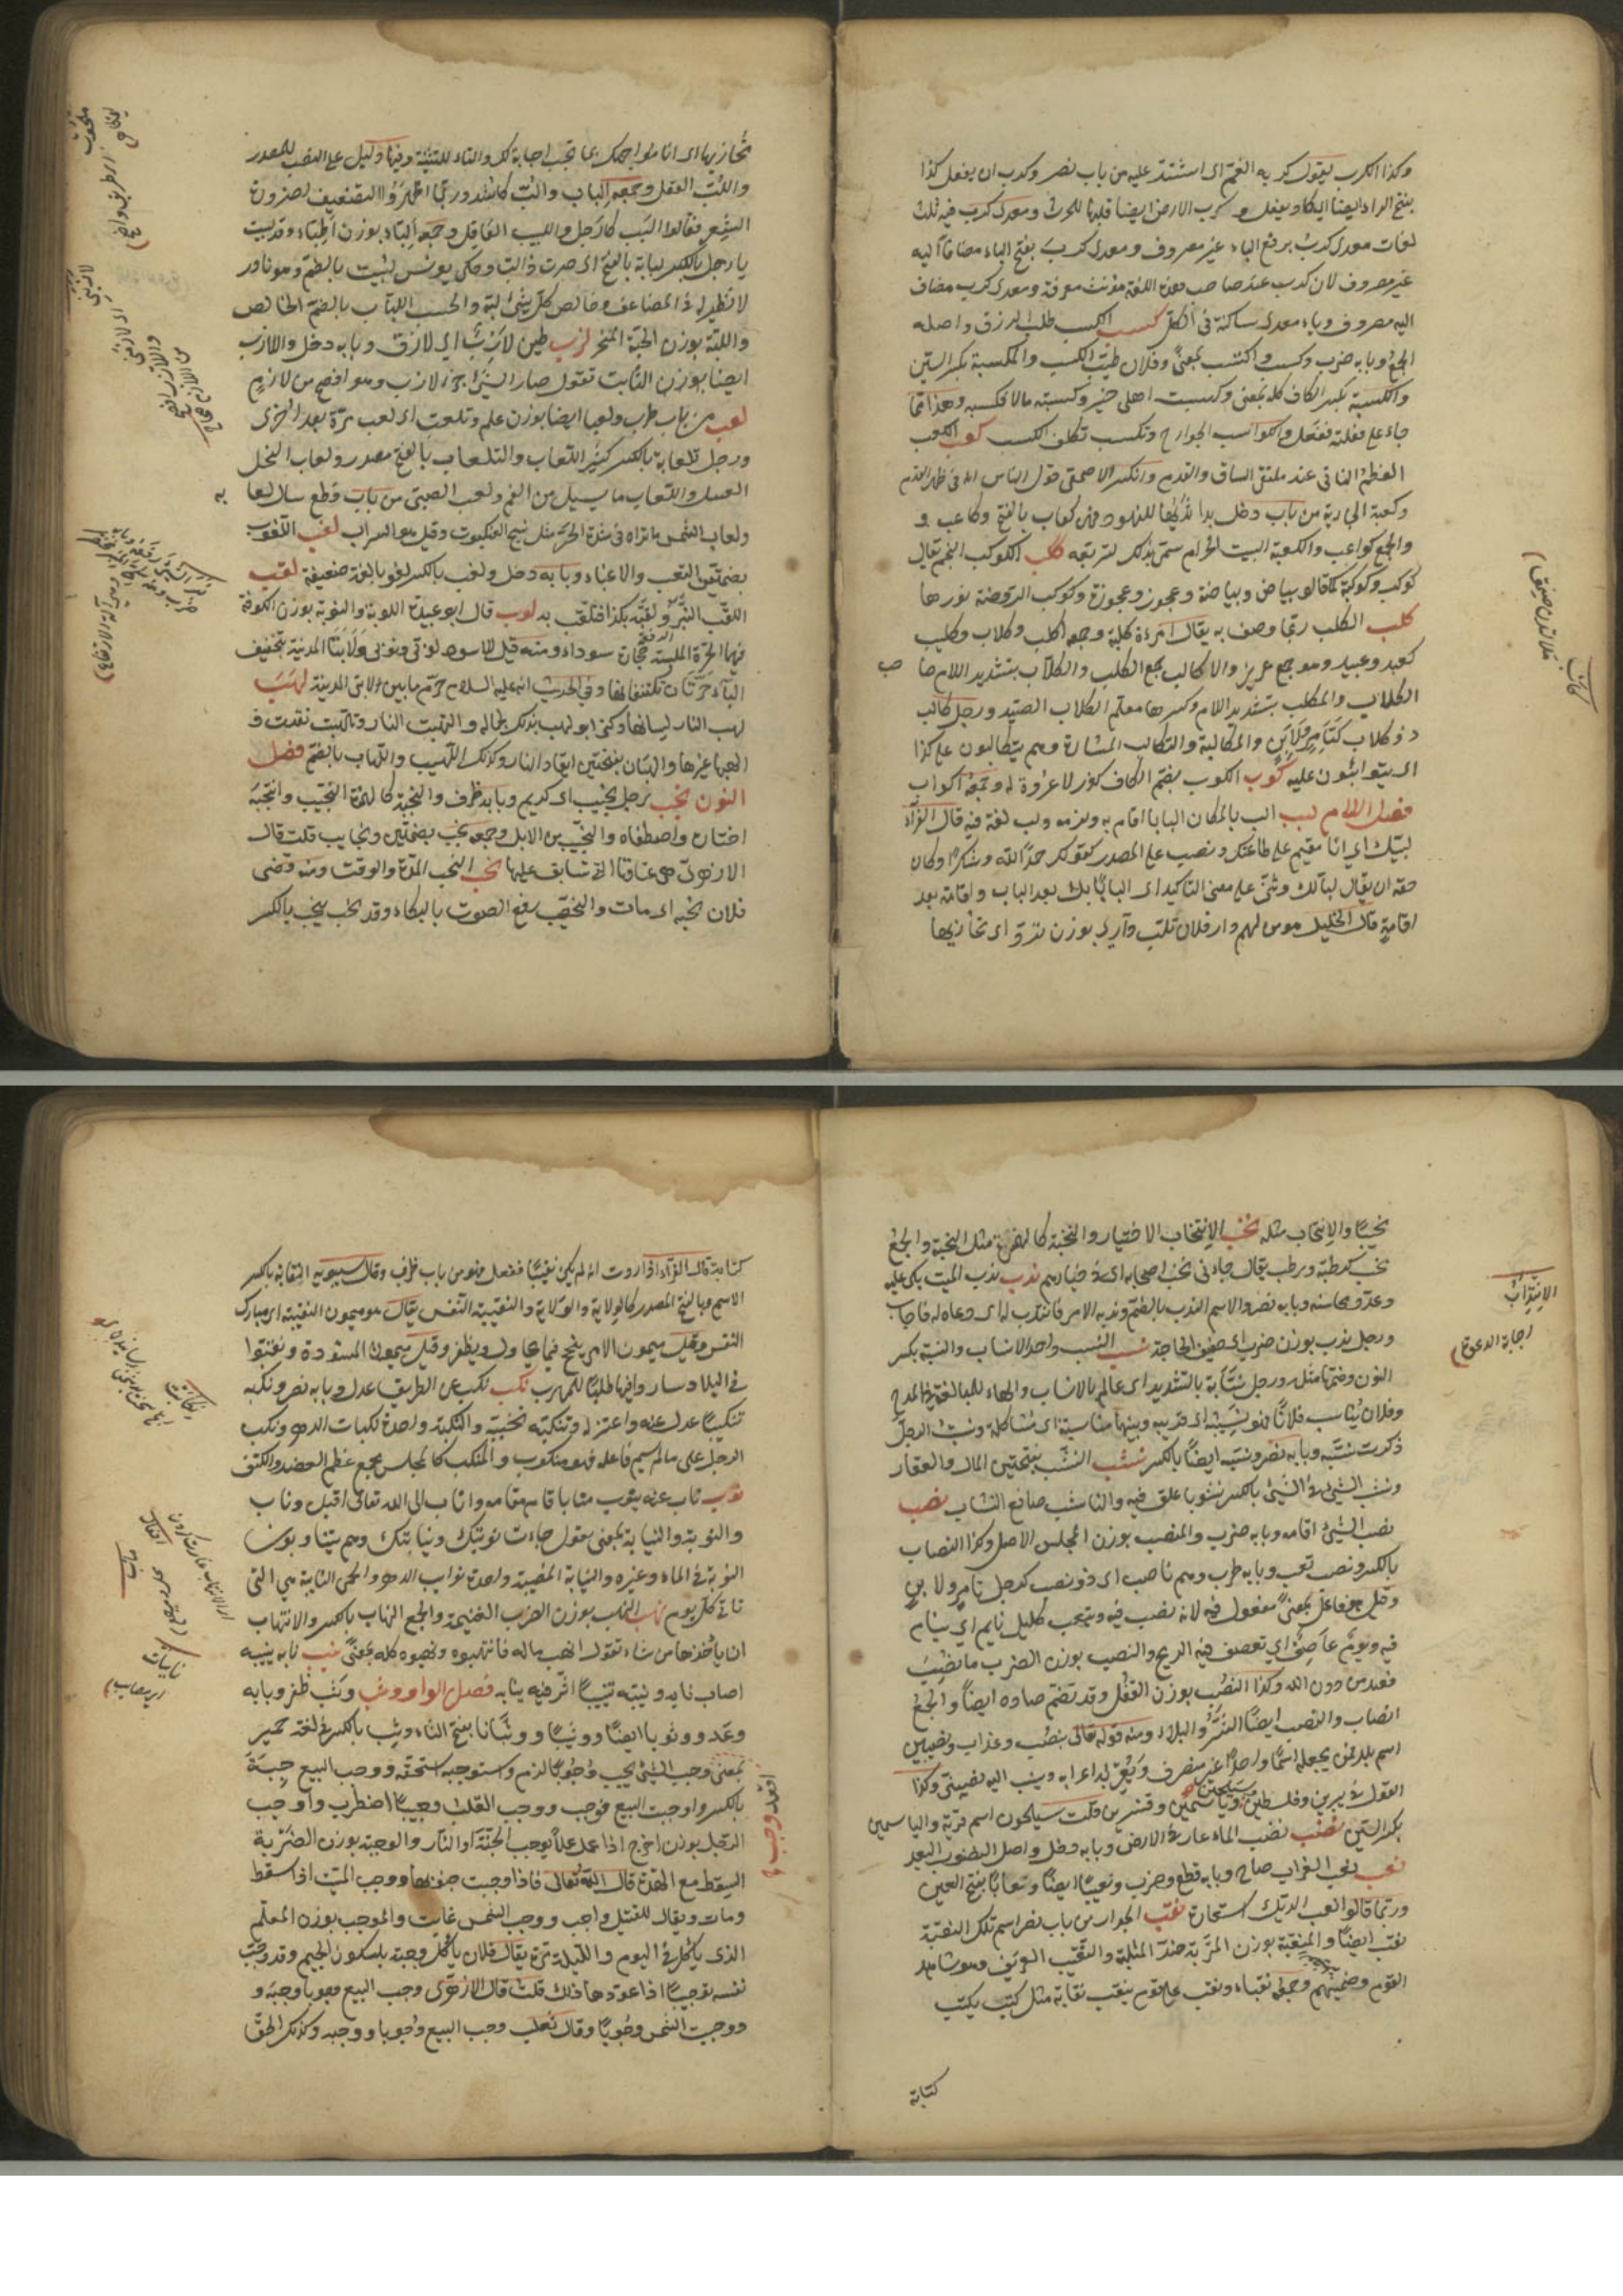 وكذا الكرب تقول كربه الغم اى اشتد عليه من باب نصر وكرب ان يفعل كذا
بفتح الراء ايضا اى كاد يفعل وكرب الارض ايضا قلبها للحرث ومعدى كرب فيه ثلث
لغات معدى كرب برفع الباء غير مصروف ومعدى كرب بفتح الباء مضافا اليه
غير مصروف لان كرب عند صاحب هذه اللغة مؤنث معرفة ومعدى كرب مضاف
اليه مصروف وياء معدى ساكنة فى الكل كسب الكسب طلب الرزق واصله
الجمع وبابه ضرب وكسب واكتسب بمعنى وفلان طيب الكسب والمكسبة بكسر السين
والكسبة بكسر الكاف كله بمعنى وكسبت اهلى خيرا وكسبته مالا فكسبه وهذا مما
جاء على فعلته ففعل والكواسب الجوارح وتكسب تكلف الكسب كعب الكعب
العظم الناتى عند ملتقى الساق والقدم وانكر الاصمعى قول الناس انه فى ظهر القدم
وكعبة الجارية من باب دخل بدا ثديها للنهود فهى كعاب بالفتح وكاعب و
والجمع كواعب والكعبة البيت الحرام سمى بذلك لتربيعه ككب الكوكب النجم يقال
كوكب وكوكبة كما قالو بياض وبياضة وعجوز وعجوزة وكوكب الروضة نورها
كلب الكلب ربما وصف به يقال امرءة كلبة وجمعه اكلب وكلاب وكليب
كعبد وعبيد وهو جمع عزيز والاكالب جمع الكلب والكلاب بتشديد اللام صا
حب
الكلاب والمكلب بتشديد اللام وكسرها معلم الكلاب الصيد ورجل كالب
ذو كلاب كتامر ولابن والمكالبة والتكالب المشارة وهم يتكالبون على كذا
اى يتواثبون عليه كوب الكوب بضم الكاف كوز لا عروة له وجمعه اكواب
فصل اللام لبب الب بالمكان البابا اقام به ولزمه ولب لغة فيه قال الفراء
لبيك اى انا مقيم على طاعتك ونصب على المصدر كقولك حمدا لله وشكرا وكان
حقه ان يقال لبا لك وثنى على معنى التاكيد اى البابا بك بعد الباب واقامة بعد
اقامة قال الخليل هو من لهم دار فلان تلب دارى بوزن ترد اى تحاذيها
تحاذيها اى انا مواجهك بما تحب اجابة لك والتاء للتثنية وفيها دليل على النصب للمصدر
واللب العقل وجمعه الباب والب كاشد وربما اظهروا التضعيف لضرورة
الشعر فقالوا البب كارجل واللبيب العاقل وجمعه الباء بوزن اطباء وقد لببت
يا رجل بالكسر لبابة بالفتح اى صرت ذا لب وحكى يونس لببت بالضم وهو نادر
لا نظير له فى المضاعف وخالص كل شئ لبه والحسب اللباب بالضم الخالص
واللبة بوزن الحبة المنحر لزب طين لازب اى لازق وبابه دخل واللازب
ايضا بوزن الثابت تقول صار الشئ ضربة لازب وهو افصح من لازم
لعب من باب طرب ولعبا ايضا بوزن علم وتلعب اى لعب مرة بعد اخرى
ورجل تلعابة بالكسر كثير اللعاب والتلعاب بالفتح مصدر ولعاب النحل
العسل واللعاب ما يسيل من الفم ولعب الصبى من باب قطع سال لعا
به
ولعاب الشمس ما تراه فى شدة الحر مثل نسج العنكبوت وقيل هو السراب لغب اللغوب
بضمتين التعب والاعياء وبابه دخل ولغب بالكسر لغوبا لغة ضعيفة لقب
اللقب النبز ولقبه بكذا فتلقب به لوب قال ابو عبيدة اللوبة والنوبة بوزن الكوفة
فيها الحرة الملبسة حجارة سوداء ومنه قيل للاسود لوبى ونوبى ولابتا المدينة بتخفيف
الباء حرتان تكتنفانها وفى الحديث انه عليه السلام حرم ما بين لابتى المدينة لهب
لهب النار لسانها وكنى ابو لهب بذلك لجماله والتهبت النار وتلهبت تقدت و
الهبها غيرها واللهبان بفتحتين اتقاد النار وكذلك اللهيب واللهاب بالضم فصل
النون نجب رجل نجيب اى كريم وبابه ظرف والنجبة كالهمزة النجيب وانتجبه
اختاره واصطفاه والنجيب من الابل وجمعه نجب بضمتين ونجايب قلت قال
الازهرى هى عتاقها التى تسابق عليها نحب النحب المدة والوقت ومنه قضى
فلان نحبه اى مات والنحيب رفع الصوت بالبكاء وقد نحب ينحب بالكسر
نحيبا والانتحاب مثله نخب الانتخاب الاختيار والنخبة كالهمزة مثل النجبة والجمع
نخب كرطبة ورطب يقال جاء فى نخب اصحابه اى فى خيارهم ندب ندب الميت بكى عليه
وعد محاسنه وبابه نصر والاسم الندب بالضم وندبه الامر فانتدب له اى دعاه له فاجاب
ورجل ندب بوزن ضرب اى خفيف الحاجة نسب النسب واحد الانساب والنسبة بكسر
النون وضمها مثله ورجل نسابة بالتشديد اى عالم بالانساب والهاء للمبالغة فى المدح
وفلان يناسب فلانا فهو نسيبه اى قريبه وبينهما مناسبة اى مشاكلة ونسب الرجل
ذكرت نسبه وبابه نصر ونسبه ايضا بالكسر نشب النشب بفتحتين المال والعقار
ونشب الشئ فى الشئ بالكسر نشوبا علق فيه والناشب صانع النشاب نصب
نصب الشئ اقامه وبابه ضرب والمنصب بوزن المجلس الاصل وكذا النصاب
بالكسر ونصب تعب وبابه طرب وهم ناصب اى ذو نصب كرجل تامر ولابن
وقيل هو فاعل بمعنى مفعول فيه لانه ينصب فيه ويتعب كليل نايم اى ينام
فيه ويوم عاصف اى تعصف فيه الريح والنصب بوزن الضرب ما نصب
فعبد من دون الله وكذا النصب بوزن القفل وقد تضم صاده ايضا والجمع
انصاب والنصب ايضا الشر والبلاء ومنه قوله تعالى بنصب وعذاب ونصيبين
اسم بلد فمن يجعله اسما واحدا غير منصرف ويعربه اعرابه وينسب اليه نصيبينى وكذا
القول فى يبرين وفلسطين وسيلحين وياسمين وقنسرين قلت سيلحون اسم قرية والياسمين
بكسر السين نضب نضب الماء غار فى الارض وبابه دخل واصل النضوب البعد
نعب نعب الغراب صاح وبابه قطع وضرب ونعيبا ايضا وتنعابا بفتح العين
وربما قالوا نعب الديك استعارة نقب الجدار من باب نصر اسم تلك النقبة
نقب ايضا والمنقبة بوزن المتربة ضد المثلبة والنقيب العريف وهو شاهد
القوم وضمينهم وجمعه نقباء ونقب على قومه ينقب نقابة مثل كتب يكتب
كتابة
كتابة قال الفراء اذا اردت انه لم يكن نقيبا ففعل فهو من باب ظرف وقال سيبويه النقابة بالكسر
الاسم وبالفتح المصدر كالولاية والولاية والنقيبة النفس يقال هو ميمون النقيبة اى مبارك
النفس وقيل ميمون الامر ينجح فيما يحاول ويظفر وقيل ميمون المشورة ونقبوا
فى البلاد ساروا فيها طلبا للمهرب نكب نكب عن الطريق عدل وبابه نصر ونكبه
تنكيبا عدل عنه واعتزله وتنكبه تجنبه والنكبة واحدة نكبات الدهر ونكب
الرجل على ما لم يسم فاعله فهو منكوب والمنكب كالمجلس مجمع عظم العضد والكتف
نوب ناب عنه ينوب منابا قام مقامه واناب الى الله تعالى اقبل وتاب
والنوبة والنيابة بمعنى تقول جاءت نوبتك ونيابتك وهم يتناوبون
النوبة فى الماء وغيره والنيابة المصيبة واحدة نوايب الدهر والحمى النايبة هى التى
تاتى كل يوم نهب النهب بوزن الضرب الغنيمة والجمع النهاب بالكسر والانتهاب
ان ياخذها من شاء تقول انهب ماله فانتهبوه ونهبوه كله بمعنى نيب نابه ينيبه
اصاب نابه ونيبه تنييبا اثر فيه بنابه فصل الواو وثب وثب ظفر وبابه
وعد ووثوبا ايضا ووثيبا ووثبانا بفتح الثاء وثب بالكسر فى لغة حمير
بمعنى وجب الشئ يجب وجوبا لزم واستوجبه استحقه ووجب البيع جبة
بالكسر واوجبت البيع فوجب ووجب القلب وجيبا اضطرب واوجب
الرجل بوزن اخرج اذا عمل عملا يوجب الجنة او النار والوجبة بوزن الضربة
السقطة مع الهدة قال الله تعالى فاذا وجبت جنوبها ووجب الميت اذا سقط
ومات ويقال للقتيل واجب ووجب الشمس غابت والموجب بوزن المعلم
الذى ياكل فى اليوم والليلة مرة يقال فلان ياكل وجبة بسكون الجيم وقد وجب
نفسه توجيبا اذا عودها ذلك قلت قال الازهرى وجب البيع وجوبا وجبة و
ووجبت الشمس وجوبا وقال ثعلب وجب البيع وجوبا ووجبة وكذلك الحق
الانتداب
اجابة الدعوة